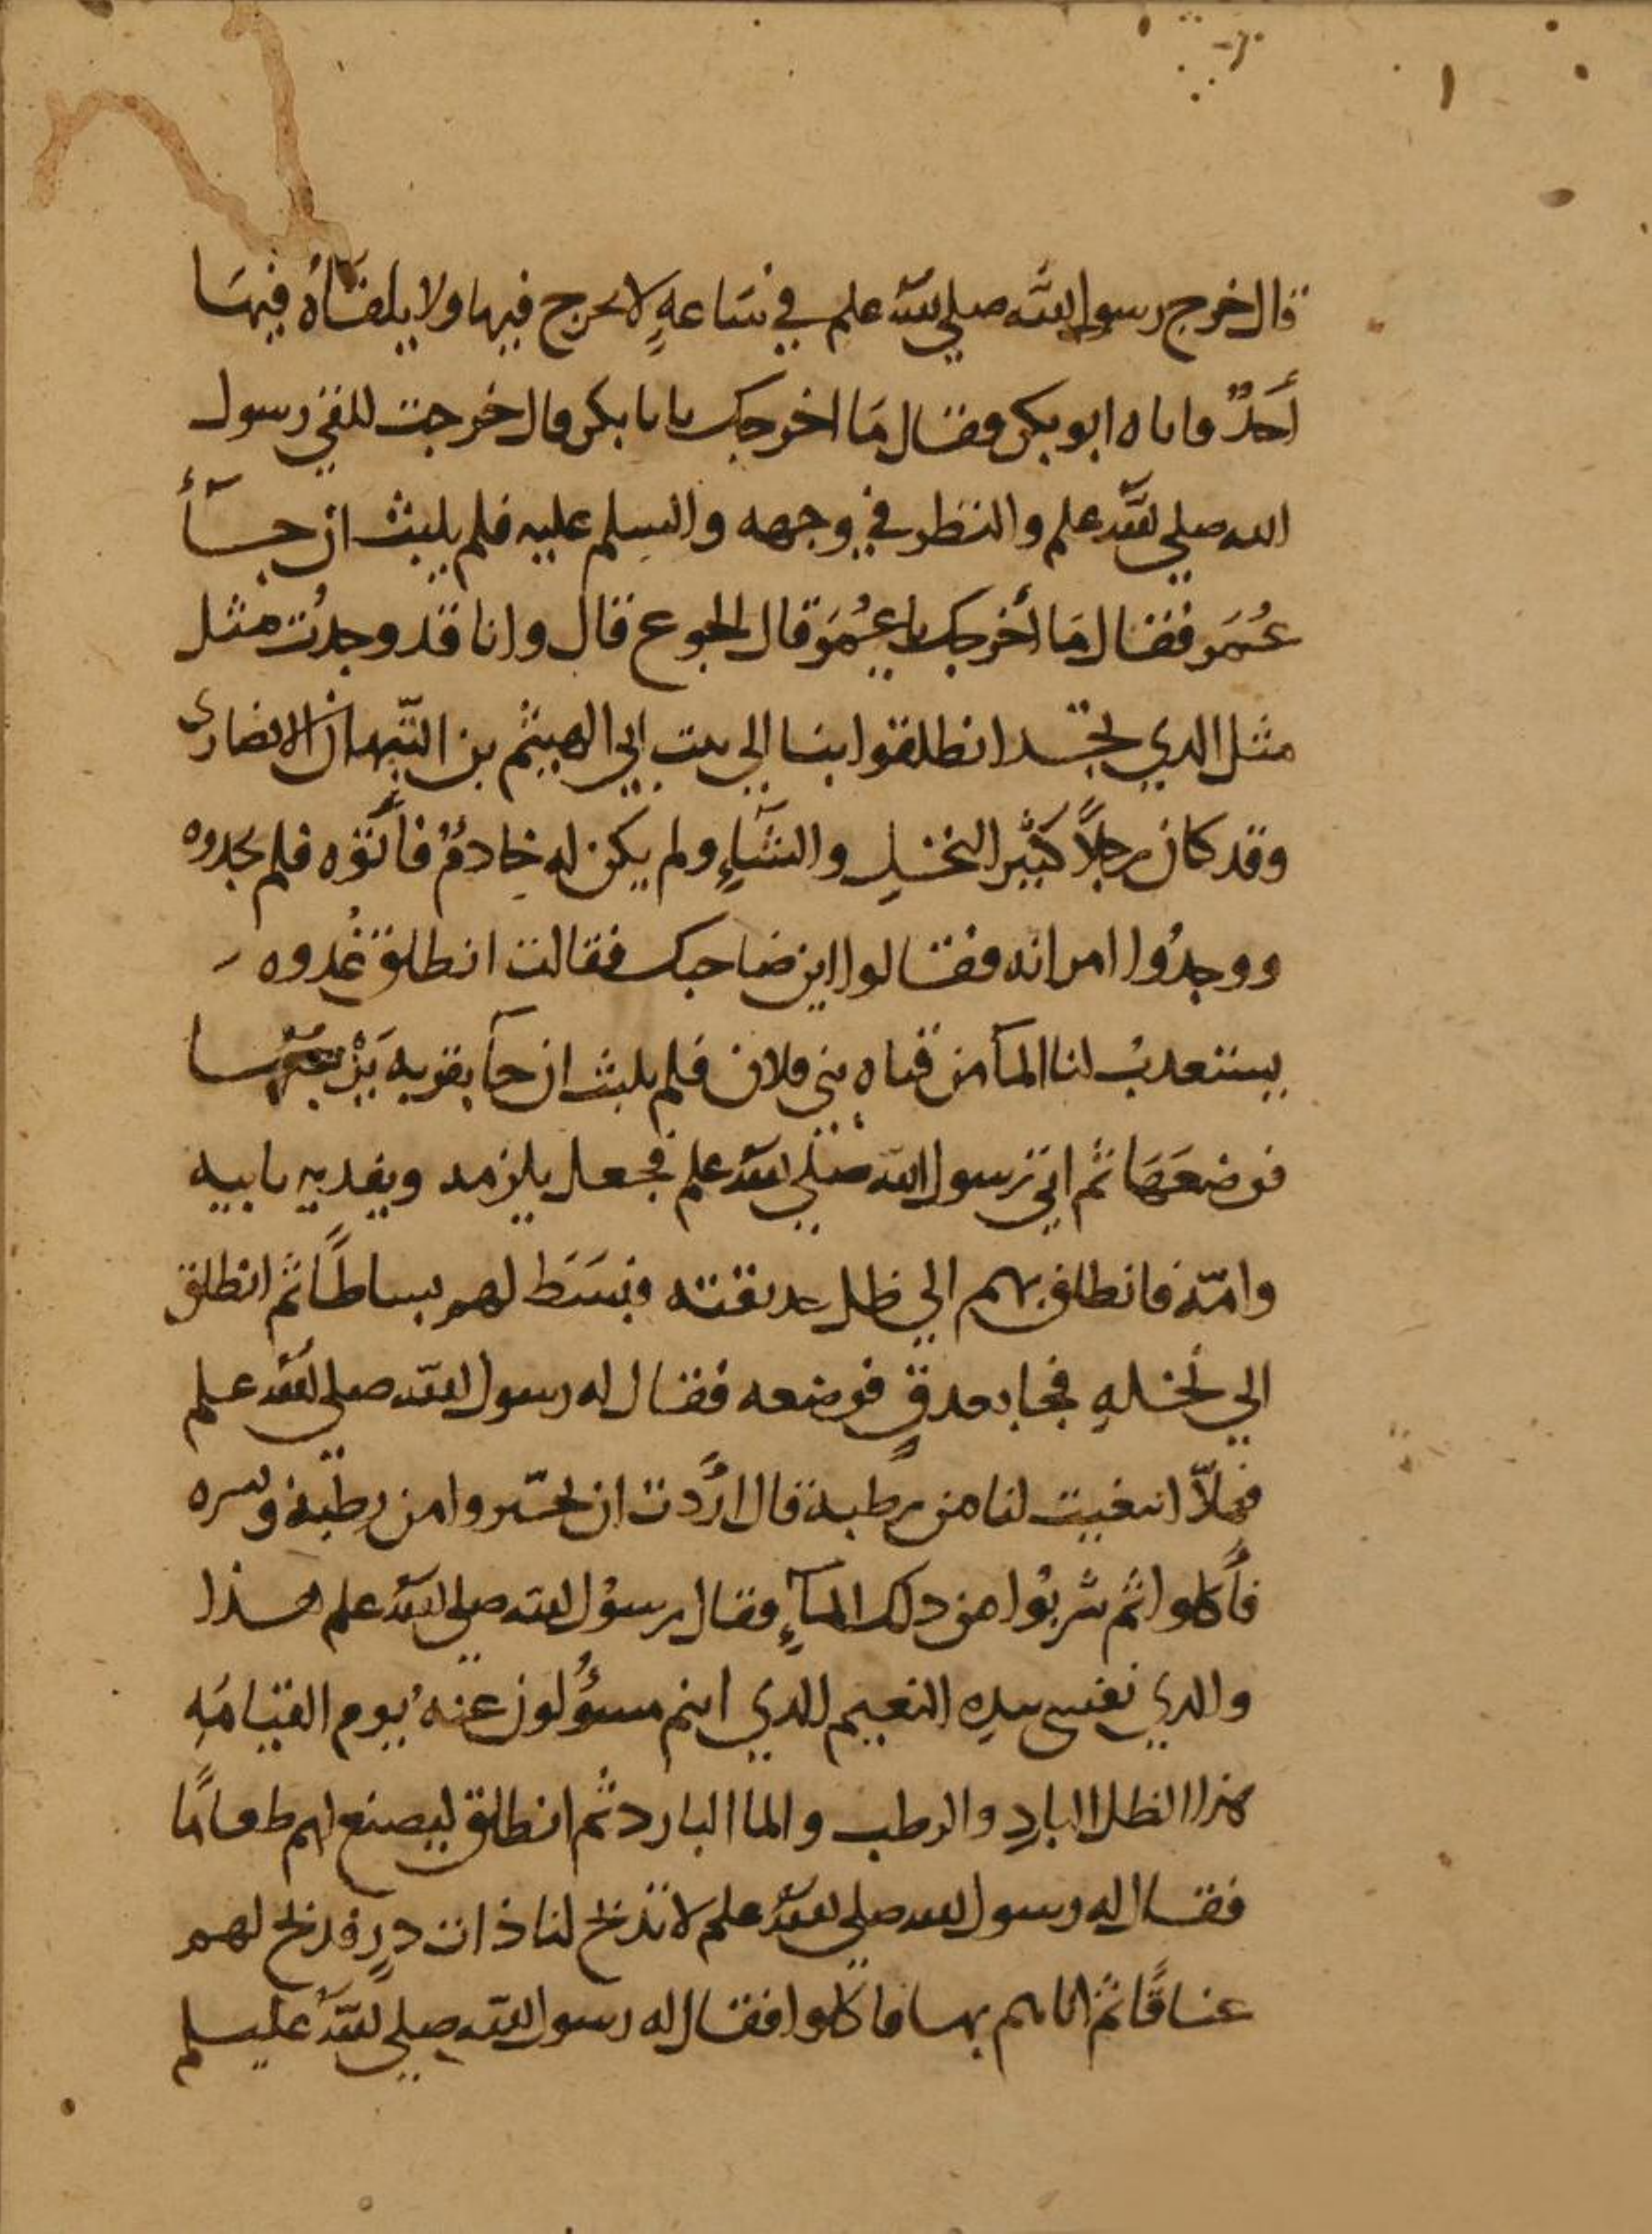 ١
قال خرج رسول الله صلى الله علم في ساعةٍ لا يخرج فيها ولا يلقاهُ فيها
أَحَدٌ فاتاه ابو بكر فقال مَا اخرجك يا با بكر قال خرجت للقى رسول
الله صلي الله علم والنظر في وجهه والتسلم عليه فلم يلبث ان جـآأ
عُمَر فقال مَا أخرجك يا عُمَر قال الجوع قال وانا قد وجدُت مثل
مثل الدي تجد انطلقوا بنا الي بيت ابي الهيثم بن التّيهان الانصارى
وقد كان رجلاً كثير النخلِ والشآءِ ولم يكن له خادمٌ فأتوه فلم يجدوه
ووجدُوا امراته فقالوا اين صاحبك فقالت انطلق غُدوه
يستعدبُ لنا المآ من قناه بني فلان فلم يلبث ان جآ بقربه
فوضعَهَا ثم اتى رسول الله صلي الله علم فجعل يلزمه ويفديه بابيه
وامّه فانطلق بهم الي ظل حديقته فبسَط لهم بساطاً ثم انطلق
الي نخلهِ فجا بعدقٍ فوضعه فقال له رسول الله صلي الله علم
فهلاّ انتقيت لنا من رطبة قال اردت ان تخيّروا من رطبة وبسره
فأكلوا ثم شربُوا من دلك المآءِ فقال رسوُل الله صلي الله علم هذا
والدي نفسي بيده النعيم الدي انتم مسؤُلون عنه يوم القيامَهِ
هذا الظل الباردِ والرطب والما البارد ثم انطلق ليصنع لهم طعامًا
فقال له رسول الله صلي الله علم لا تذبح لنا ذات درٍ فذبح لهم
عناقًا ثم اتاهم بها فاكلوا فقال له رسول الله صلي الله عليسلم